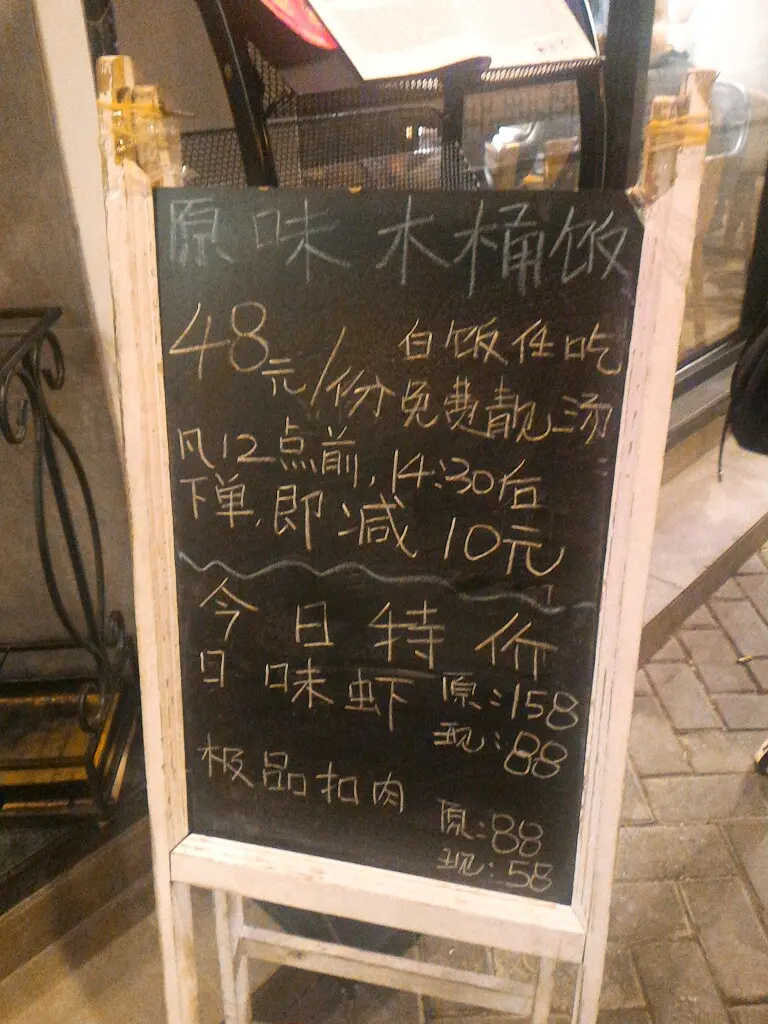 原味木桶饭
48元/份 白饭任吃
免费靓汤
凡12点前,14:30后
下单,即减10元
今日特价
日味虾 原:158
现:88
极品扣肉
原:88
现:58